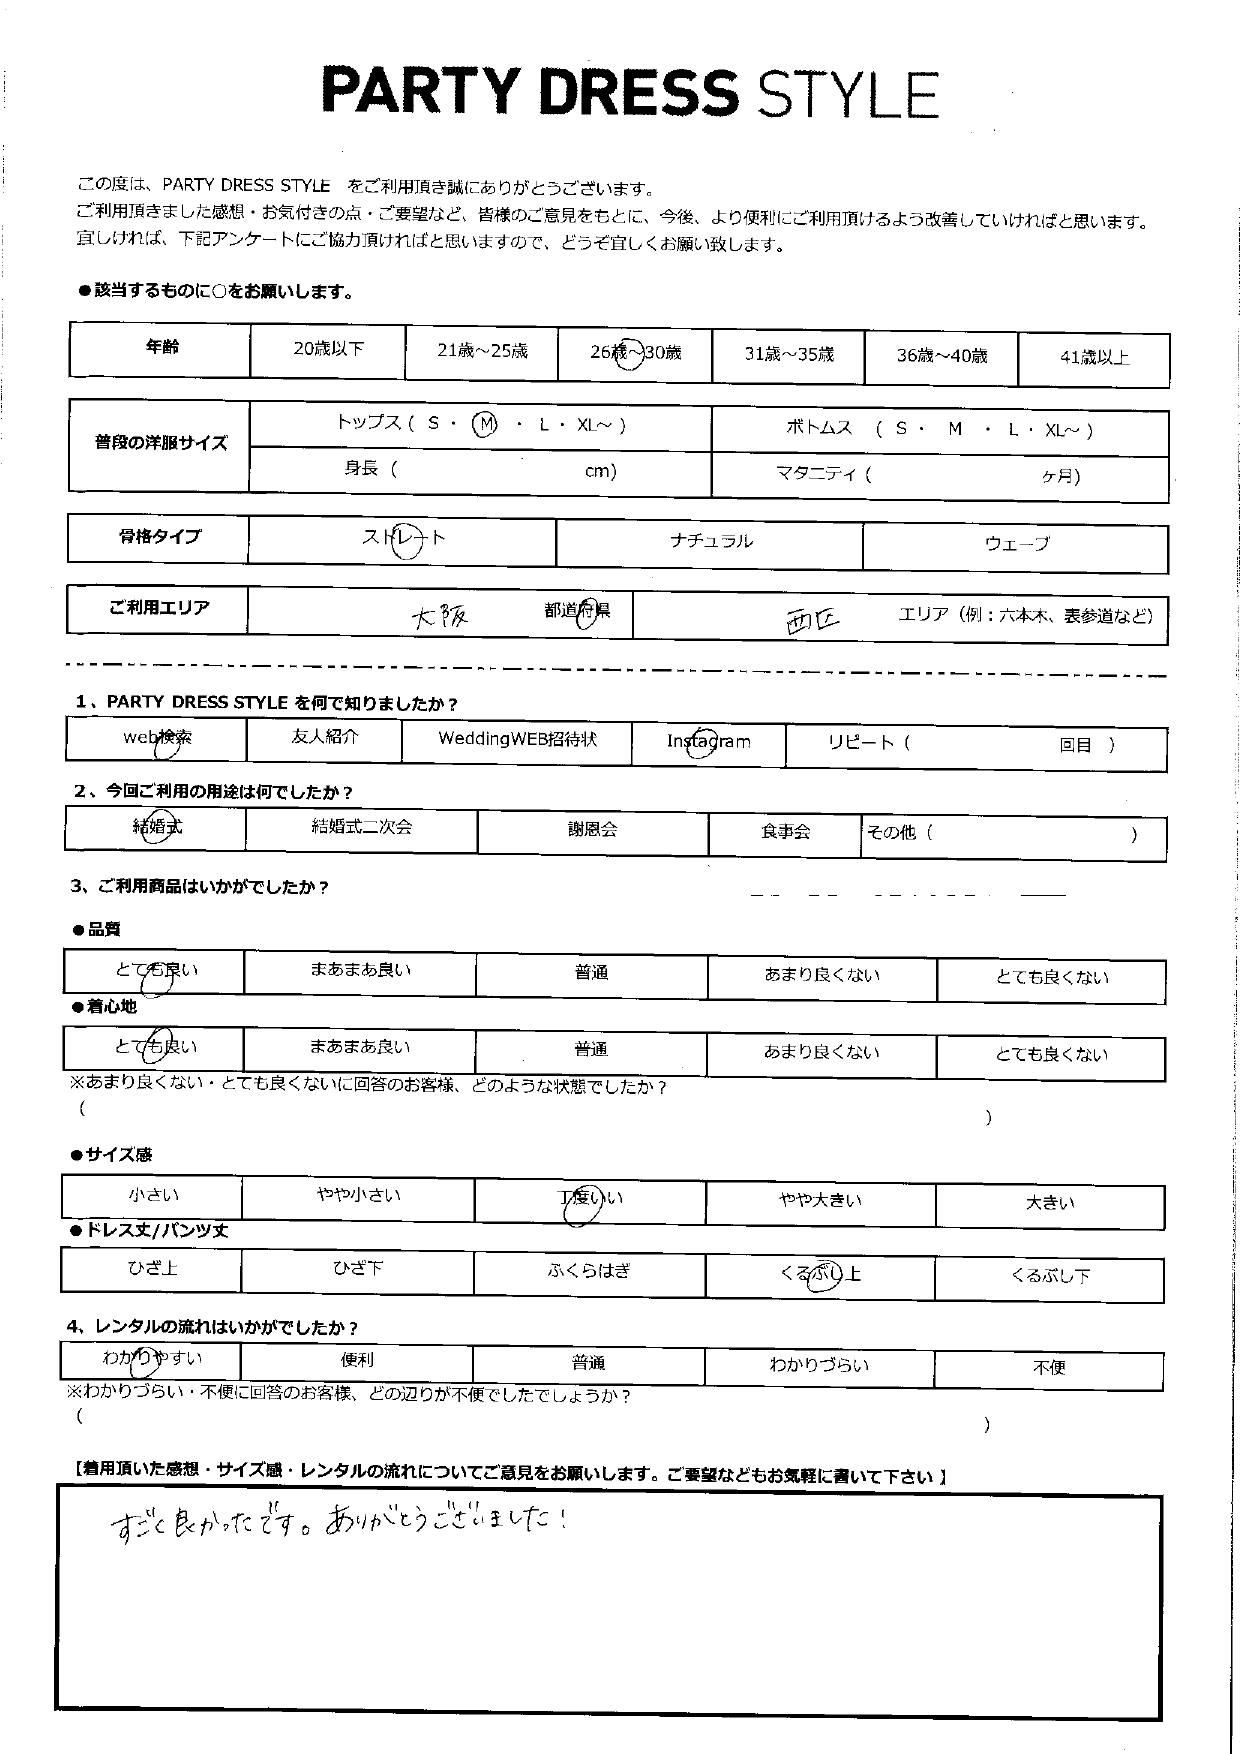 PARTY DRESS STYLE
この度は、PARTY DRESS STYLE　をご利用頂き誠にありがとうございます。
ご利用頂きました感想・お気付きの点・ご要望など、皆様のご意見をもとに、今後、より便利にご利用頂けるよう改善していければと思います。
宜しければ、下記アンケートにご協力頂ければと思いますので、どうぞ宜しくお願い致します。
●該当するものに○をお願いします。
年齢 20歳以下 21歳～25歳 26歳～30歳 31歳～35歳 36歳～40歳 41歳以上
普段の洋服サイズ トップス ( S ・ M ・ L ・ XL～ ) ボトムス ( S ・ M ・ L ・ XL～ )
身長 ( cm) マタニティ ( ヶ月)
骨格タイプ ストレート ナチュラル ウェーブ
ご利用エリア 大阪 都道府県 西区 エリア（例：六本木、表参道など）
1、PARTY DRESS STYLE を何で知りましたか？
web検索 友人紹介 WeddingWEB招待状 Instagram リピート ( 回目 )
2、今回ご利用の用途は何でしたか？
結婚式 結婚式二次会 謝恩会 食事会 その他 ( )
3、ご利用商品はいかがでしたか？
●品質
とても良い まあまあ良い 普通 あまり良くない とても良くない
●着心地
とても良い まあまあ良い 普通 あまり良くない とても良くない
※あまり良くない・とても良くないに回答のお客様、どのような状態でしたか？
( )
●サイズ感
小さい やや小さい 丁度いい やや大きい 大きい
●ドレス丈/パンツ丈
ひざ上 ひざ下 ふくらはぎ くるぶし上 くるぶし下
4、レンタルの流れはいかがでしたか？
わかりやすい 便利 普通 わかりづらい 不便
※わかりづらい・不便に回答のお客様、どの辺りが不便でしたでしょうか？
( )
【着用頂いた感想・サイズ感・レンタルの流れについてご意見をお願いします。ご要望などもお気軽に書いて下さい 】
すごく良かったです。ありがとうございました！